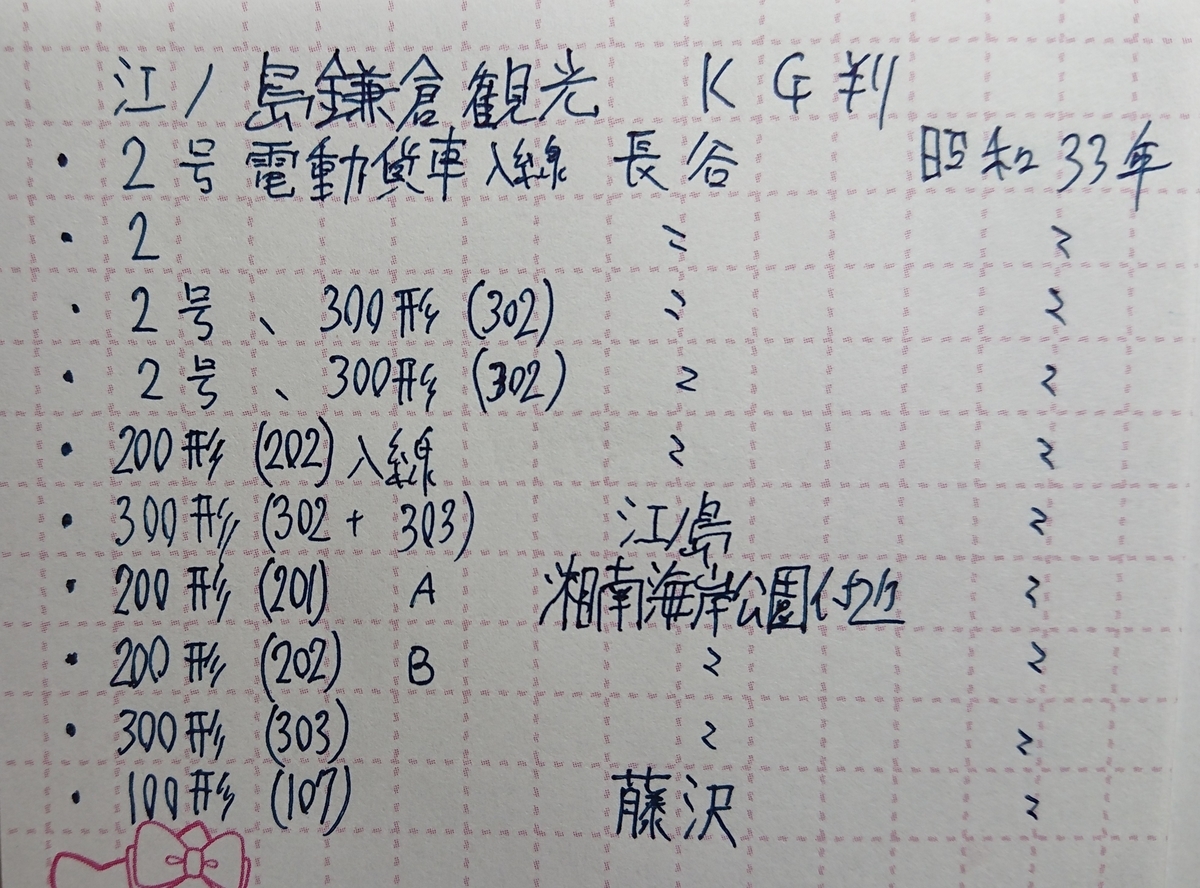 江ノ島鎌倉観光 KG判
・2号電動貨車入線 長谷 昭和33年
・2 〃 〃
・2号、300形(302) 〃 〃
・2号、300形(302) 〃 〃
・200形(202)入線 〃 〃
・300形(302+303) 江ノ島 〃
・200形(201) A 湘南海岸公園付近 〃
・200形(202) B 〃 〃
・300形(303) 〃 〃
・100形(107) 藤沢 〃